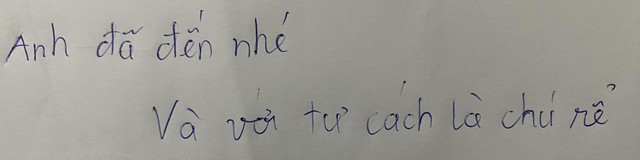 Anh đã đến nhé
Và với tư cách là chú rể